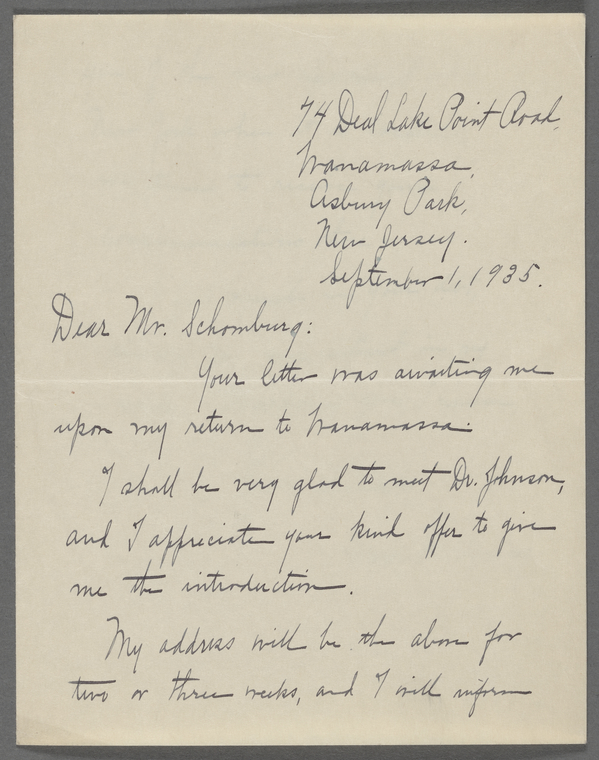 74 Deal Lake Point Road,
Wanamassa,
Asbury Park,
New Jersey.
September 1, 1935.
Dear Mr. Schomburg:
Your letter was awaiting me
upon my return to Wanamassa.
I shall be very glad to meet Dr. Johnson,
and I appreciate your kind offer to give
me the introduction.
My address will be the above for
two or three weeks, and I will inform